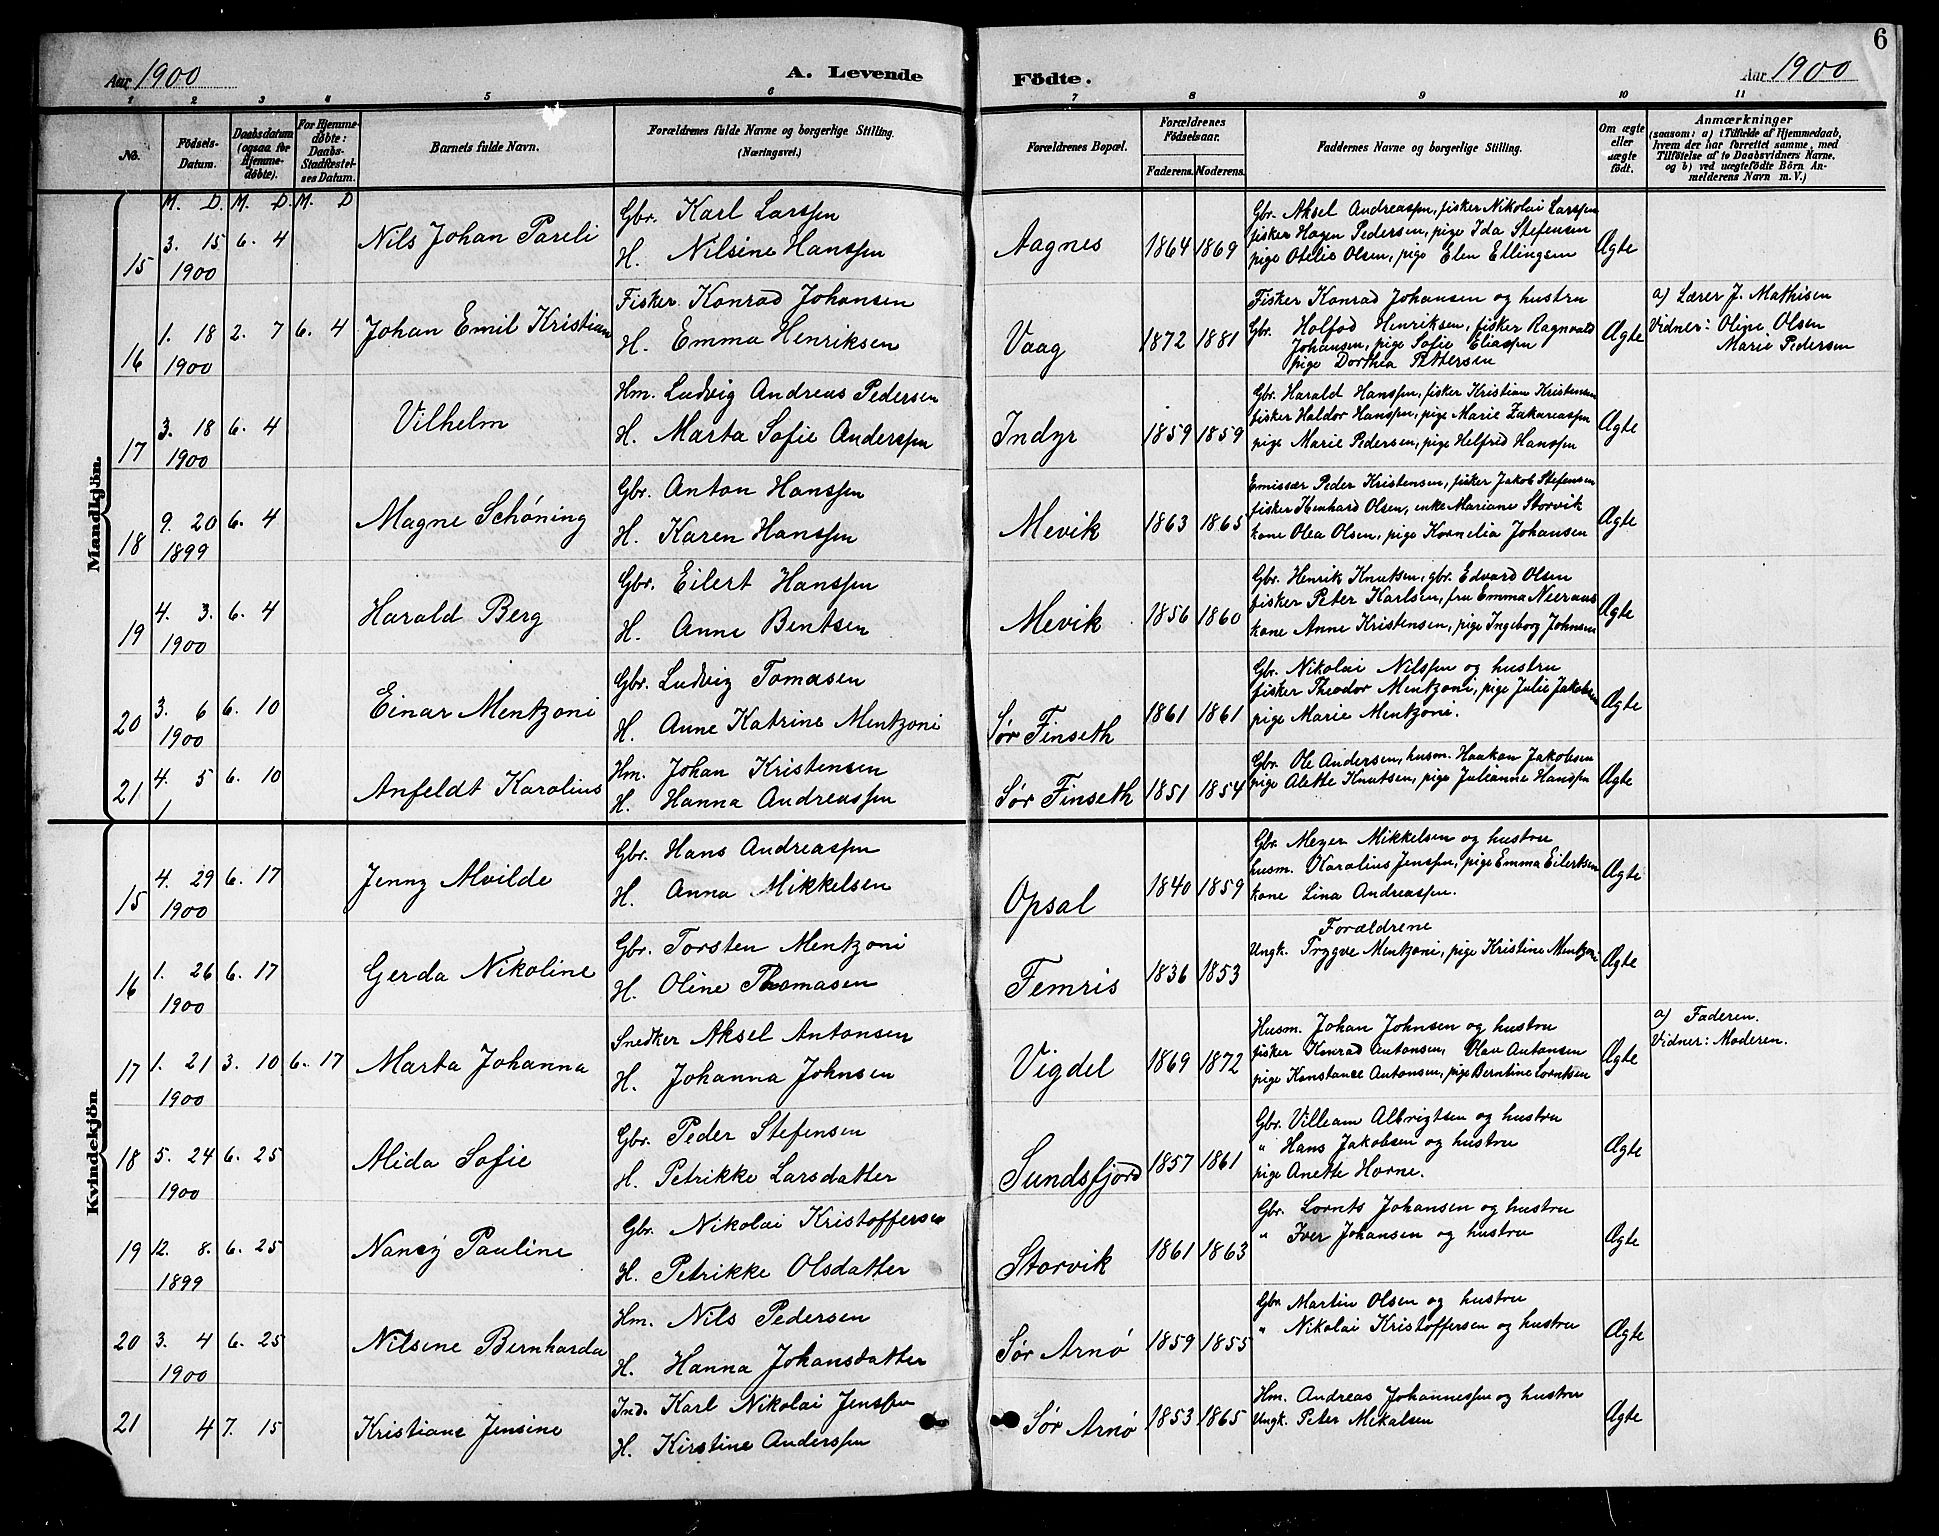 6
Aar 1900
A. Levende
Födte.
Aar 1900
1 2 3 4 5 6 7 8 9 10 11
No.
Födsels-Datum.
Daabsdatum (ogsaa for Hjemme-døbte).
For Hjemme-døbte: Daabs-Stadfæstel-ses Datum.
Barnets fulde Navn.
Forældrenes fulde Navne og borgerlige Stilling.
(Næringsvei.)
Forældrenes Bopæl.
Forældrenes Födselsaar.
Faderens. Moderens.
Faddernes Navne og borgerlige Stilling.
Om ægte eller uægte født.
Anmærkninger
(saasom: a) i Tilfælde af Hjemmedaab,
hvem der har forrettet samme, med
Tilföielse af to Daabsvidners Navne,
og b) ved uægtefödte Börn An-
melderens Navn m. V.)
M. D. M. D. M. D
Mandkjön.
15 3. 15 1900 6. 4 Nils Johan Pareli
Gbr. Karl Larssen
H. Nilsine Hanssen
Aagnes 1864 1869
Gbr. Aksel Andreassen, fisker Nikolai Larssen
fisker Hagen Pedersen, pige Ida Stefensen
pige Otelie Olsen, pige Elen Ellingsen
Ægte
16 1. 18 1900 2. 7 6. 4 Johan Emil Kristian
Fisker. Konrad Johansen
H. Emma Henriksen
Vaag 1872 1881
Fisker Konrad Johansen og hustru
Gbr. Holfod Henriksen, fisker Ragnvald
Johansen, pige Sofie Eliassen
pige Dorthea Pettersen
Ægte
a) Lærer J. Mathisen
Vidner: Oline Olsen
Marie Pedersen
17 3. 18 1900 6. 4 Vilhelm
Hm. Ludvig Andreas Pedersen
H. Marta Sofie Anderssen
Indyr 1859 1859
Gbr. Harald Hanssen, fisker Kristian Kristensen
fisker Haldor Hanssen, pige Marie Zakariassen
pige Marie Pedersen, pige Helfrid Hanssen
Ægte
18 9. 20 1899 6. 4 Magne Schøning
Gbr. Anton Hanssen
H. Karen Hanssen
Mevik 1863 1865
Emissær Peder Kristensen, fisker Jakob Stefensen
fisker Kenhard Olsen, enke Mariane Storvik
kone Olea Olsen, pige Kornelia Johansen
Ægte
19 4. 3. 1900 6. 4 Harald Berg
Gbr. Eilert Hanssen
H. Anne Bentsen
Mevik 1856 1860
Gbr. Henrik Knutsen, gbr. Edvard Olsen
fisker Peter Karlsen, fru Emma Neeraas
kone Anne Kristensen, pige Ingeborg Johnsen
Ægte
20 3. 6 1900 6. 10 Einar Mentzoni
Gbr. Ludvig Tomasen
H. Anne Katrine Mentzoni
Sør Finseth 1861 1861
Gbr. Nikolai Nilssen og hustru
fisker Theodor Mentzoni, pige Julie Jakobsen
pige Marie Mentzoni.
Ægte
21 4. 5 6. 10 Anfeldt Karolius
Hm. Johan Kristensen
H. Hanna Andreassen
Sør Finseth 1851 1854
Gbr. Ole Andersen, husm. Haakon Jakobsen
pige Alette Knutsen, pige Julianne Hanssen
Ægte
Kvindekjön
15 4. 29 1900 6. 17 Jenny Alvilde
Gbr. Hans Andreassen
H. Anna Mikkelsen
Opsal 1840 1859
Gbr. Meyer Mikkelsen og hustru
husm. Karolius Jenssen, pige Emma Eilertsen
kone Lina Andreassen.
Ægte
16 1. 26 1900 6. 17 Gerda Nikoline
Gbr. Torsten Mentzoni
H. Oline Thomasen
Femris 1836 1853
Forældrene
Ungk. Trygve Mentzoni, pige Kristine Mentzoni
Ægte
17 1. 21 1900 3. 10 6. 17 Marta Johanna
Snedker Aksel Antonsen
H. Johanna Johnsen
Vigdel 1869 1872
Husm. Johan Johnsen og hustru
fisker Konrad Antonsen, Olav Antonsen
pige Konstance Antonsen, pige Berntine Lorntsen
Ægte
a) Faderen.
Vidner: Moderen.
18 5. 24 1900 6. 25 Alida Sofie
Gbr. Peder Stefensen
H. Petrikke Larsdatter
Sundsfjord 1857 1861
Gbr. Villeam Albrigtsen og hustru
" Hans Jakobsen og hustru
pige Anette Horne.
Ægte
19 12. 8. 1899 6. 25 Nancy Pauline
Gbr. Nikolai Kristoffersen
H. Petrikke Olsdatter
Storvik 1861 1863
Gbr. Lornts Johansen og hustru
" Iver Johansen og hustru
Ægte
20 3. 4 1900 6. 25 Nilsine Bernharda
Hm. Nils Pedersen
H. Hanna Johansdatter
Sør Arnø 1859 1855
Gbr. Martin Olsen og hustru
" Nikolai Kristoffersen og hustru
Ægte
21 4 7. 15 Kristiane Jensine
Ind. Karl Nikolai Jenssen
H. Kirstine Anderssen
Sør Arnø 1853 1865
Hm. Andreas Johannessen og hustru
Ungk. Peter Mikalsen
Ægte